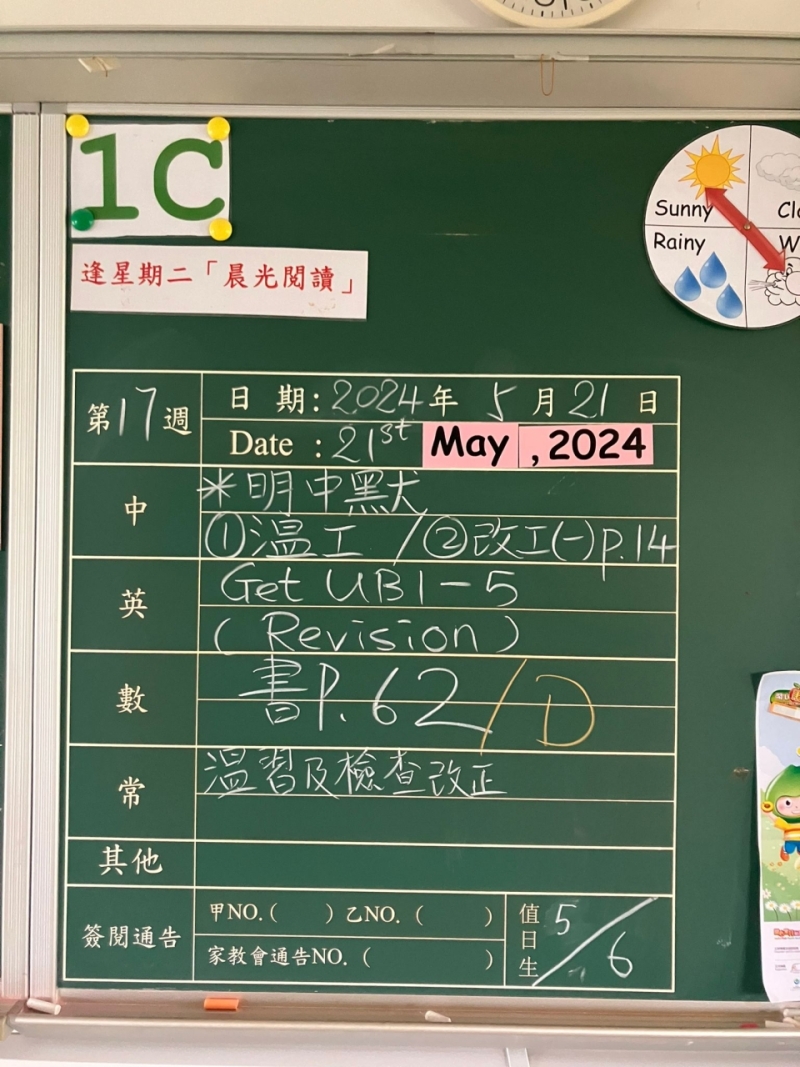 1C
逢星期二「晨光閱讀」
Sunny
Rainy
第17週
日 期: 2024年 5月21日
Date : 21st May , 2024
中
*明中默
①温工 / ②改工(一)p.14
英
Get UB1-5
(Revision)
數
書P.62/D
常
溫習及檢查改正
其他
簽閱通告
甲NO.( ) 乙NO. ( )
家教會通告NO. ( )
值日生 5/6